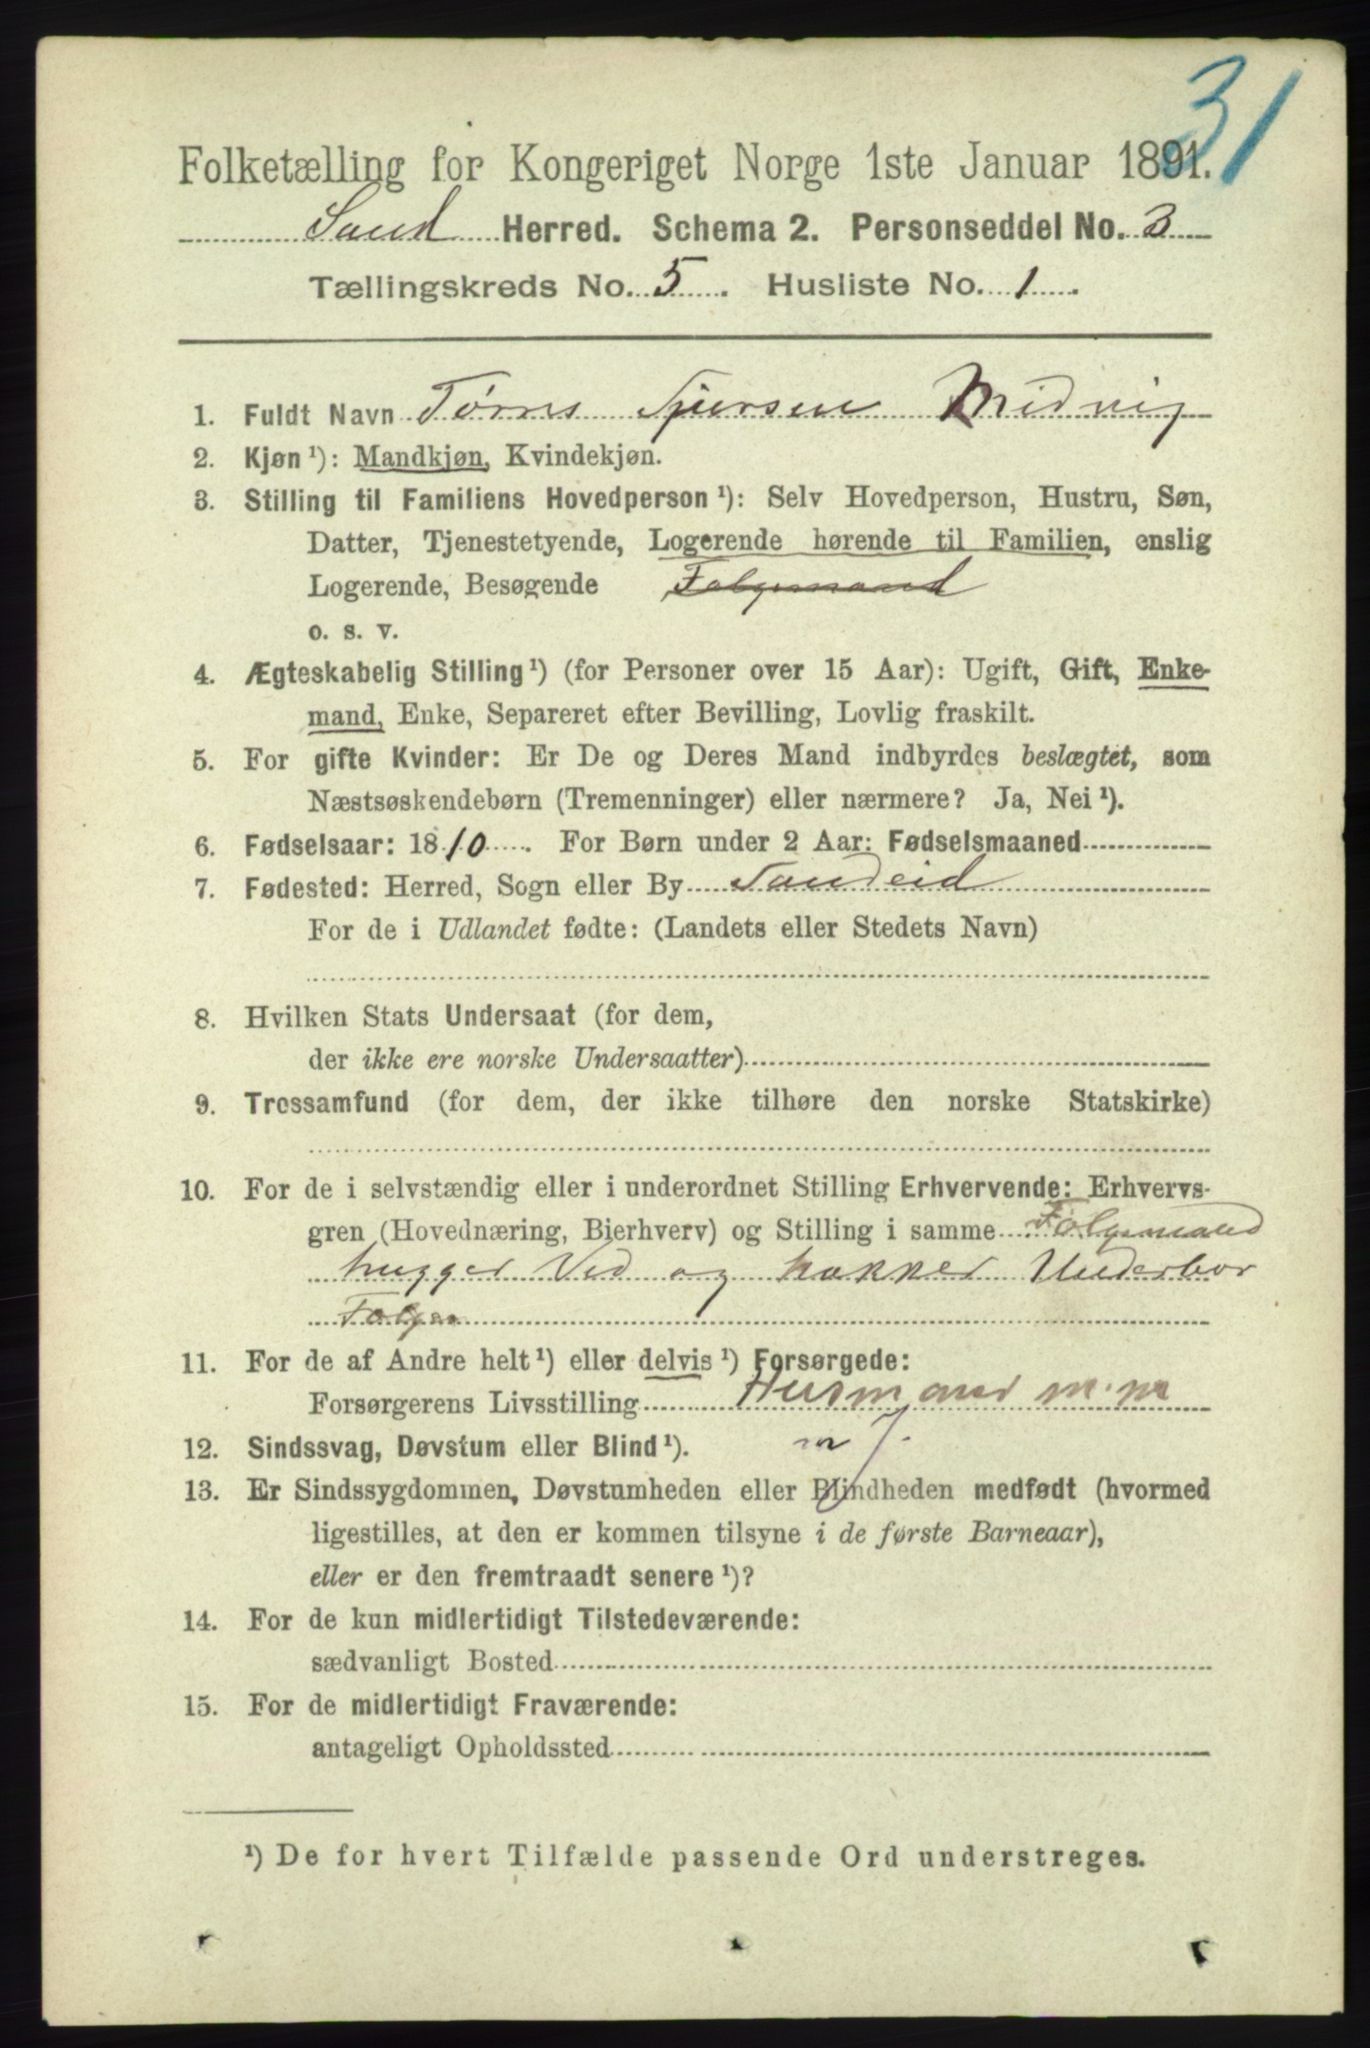 31
Folketælling for Kongeriget Norge 1ste Januar 1891.
Sand Herred. Schema 2. Personseddel No. 3
Tællingskreds No. 5. Husliste No. 1.
1. Fuldt Navn Tørres Midvig
2. Kjøn ¹): Mandkjøn, Kvindekjøn.
3. Stilling til Familiens Hovedperson ¹): Selv Hovedperson, Hustru, Søn,
Datter, Tjenestetyende, Logerende hørende til Familien, enslig
Logerende, Besøgende Folgemand
o. s. v.
4. Ægteskabelig Stilling ¹) (for Personer over 15 Aar): Ugift, Gift, Enke-
mand, Enke, Separeret efter Bevilling, Lovlig fraskilt.
5. For gifte Kvinder: Er De og Deres Mand indbyrdes beslægtet, som
Næstsøskendebørn (Tremenninger) eller nærmere? Ja, Nei ¹).
6. Fødselsaar: 1810. For Børn under 2 Aar: Fødselsmaaned
7. Fødested: Herred, Sogn eller By Sandeid
For de i Udlandet fødte: (Landets eller Stedets Navn)
8. Hvilken Stats Undersaat (for dem,
der ikke ere norske Undersaatter)
9. Trossamfund (for dem, der ikke tilhøre den norske Statskirke)
10. For de i selvstændig eller i underordnet Stilling Erhvervende: Erhvervs-
gren (Hovednæring, Bierhverv) og Stilling i samme Folgemand
hugger Ved og hakker Underbar
Folger
11. For de af Andre helt ¹) eller delvis ¹) Forsørgede:
Forsørgerens Livsstilling Husmand m. m
12. Sindssvag, Døvstum eller Blind ¹).
13. Er Sindssygdommen, Døvstumheden eller Blindheden medfødt (hvormed
ligestilles, at den er kommen tilsyne i de første Barneaar),
eller er den fremtraadt senere ¹)?
14. For de kun midlertidigt Tilstedeværende:
sædvanligt Bosted
15. For de midlertidigt Fraværende:
antageligt Opholdssted
¹) De for hvert Tilfælde passende Ord understreges.